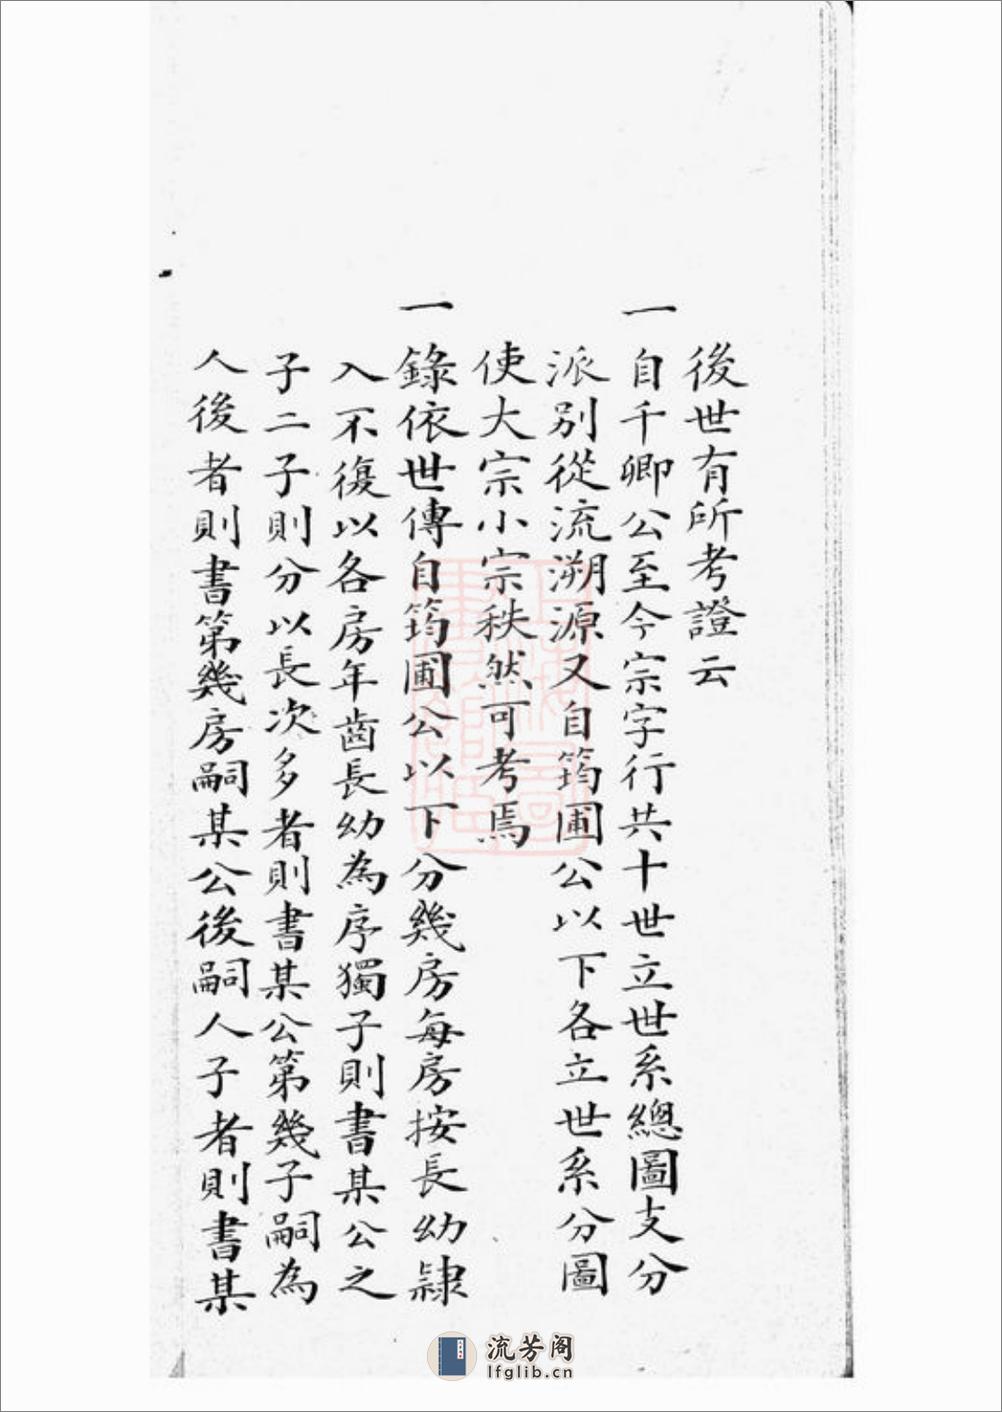 後世有所考證云
一自千卿公至今宗字行共十世立世系總圖支分
派別從流溯源又自筠圃公以下各立世系分圖
使大宗小宗秩然可考焉
一錄依世傳自筠圃公以下分幾房每房按長幼隷
入不復以各房年齒長幼為序獨子則書某公之
子二子則分以長次多者則書某公第幾子嗣為
人後者則書第幾房嗣某公後嗣人子者則書某
流芳阁
lfglib.cn